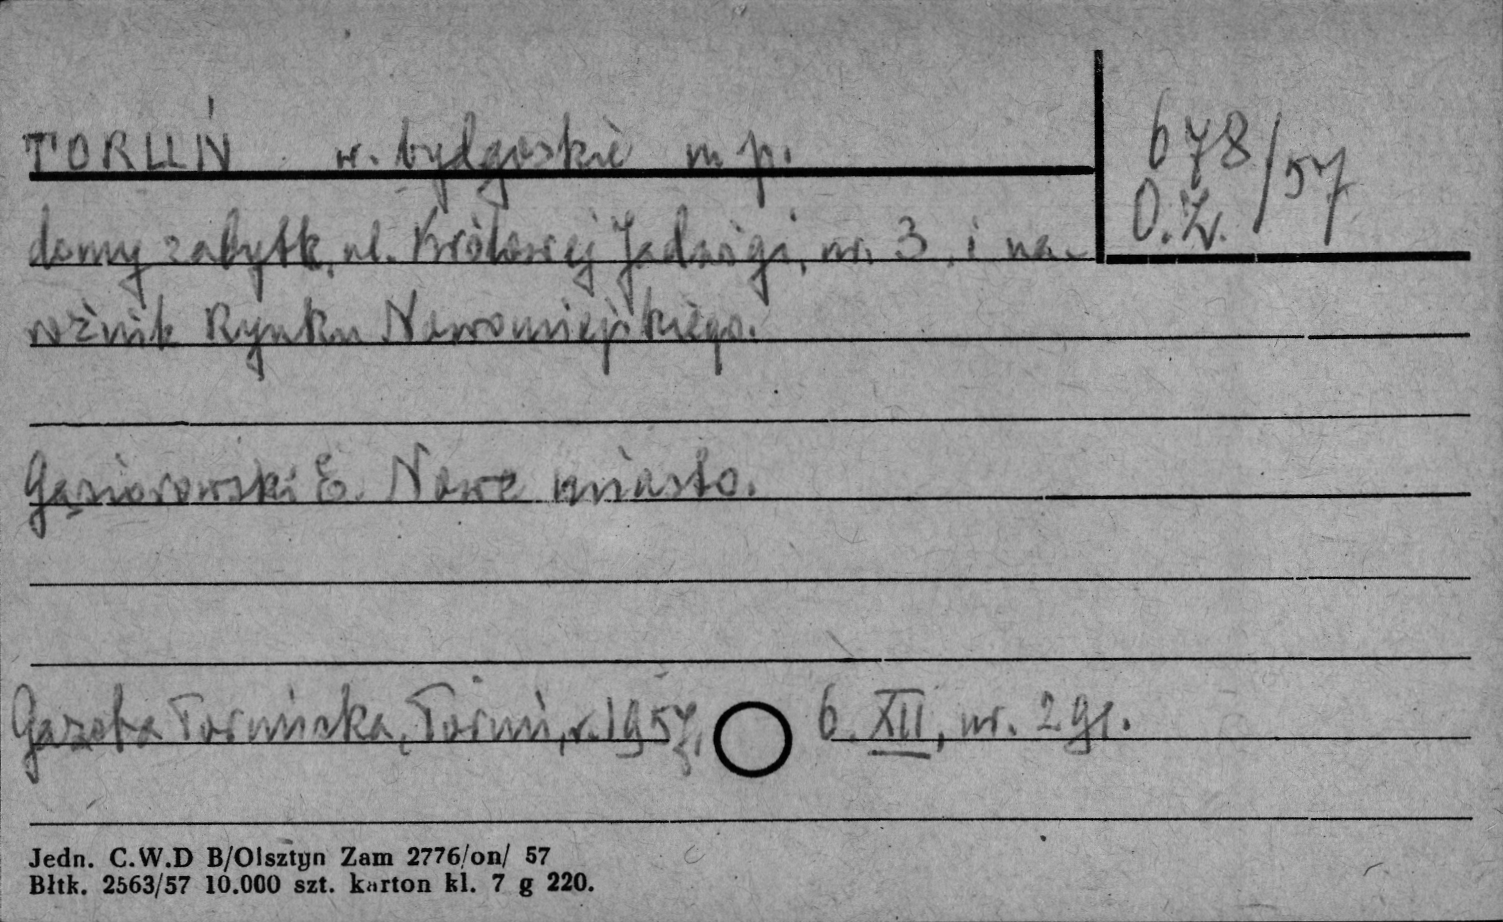 TORUŃ w. bydgoskie m p.
678/57
O.Z.
domy zabytk. ul. Królowej Jadwigi, nr. 3. i na-
rożnik Rynku Nowomiejskiego.
Gąsiorowski E. Nowe miasto.
Gazeta Toruńska, Toruń, r. 1957, 6. XII, nr. 291.
Jedn. C.W.D B/Olsztyn Zam 2776/on/ 57
Błtk. 2563/57 10.000 szt. karton kl. 7 g 220.